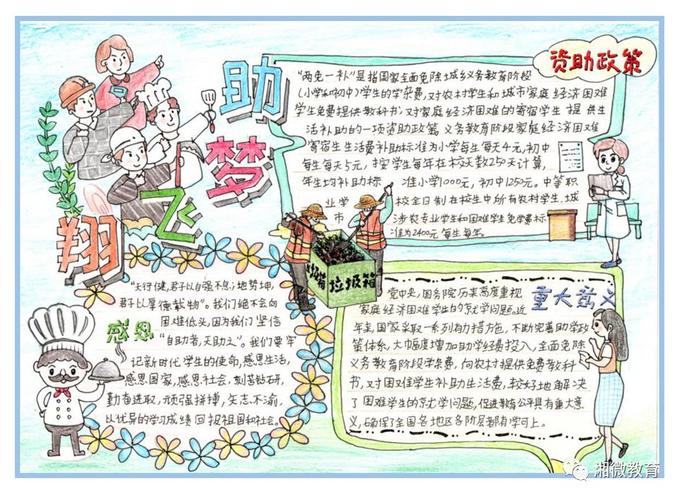 助梦
飞翔
资助政策
"两免一补"是指国家全面免除城乡义务教育阶段
(小学和初中)学生的学杂费,对农村学生和城市家庭经济困难
学生免费提供教科书;对家庭经济困难的寄宿学生提供生
活补助的一项资助政策。义务教育阶段家庭经济困难
寄宿生生活费补助标准为小学每生每天4元,初中
每生每天5元,按学生每年在校天数250天计算,
年生均补助标准小学1000元,初中1250元。中等职
业学校全日制在校生中所有农村学生、城
市涉农专业学生和困难学生免学费标
准为2400元每生每年。
垃圾箱
垃圾箱
感恩
"天行健,君子以自强不息;地势坤,
君子以厚德载物"。我们绝不会向
困难低头,因为我们坚信
"自助者,天助之"。我们要牢
记新时代学生的使命,感恩生活,
感恩国家,感恩社会,刻苦钻研,
勤奋进取,顽强拼搏,矢志不渝,
以优异的学习成绩回报祖国和社会。
重大意义
党中央,国务院历来高度重视
家庭经济困难学生的就学问题。近
年来,国家采取一系列有力措施,不断完善助学政
策体系,大幅度增加助学经费投入,全面免除
义务教育阶段学杂费,向农村提供免费教科
书,对困难学生补助生活费,较好地解决
了困难学生的就学问题,促进教育公平具有重大意
义,确保了全国各地区各阶层都有学可上。
湘微教育